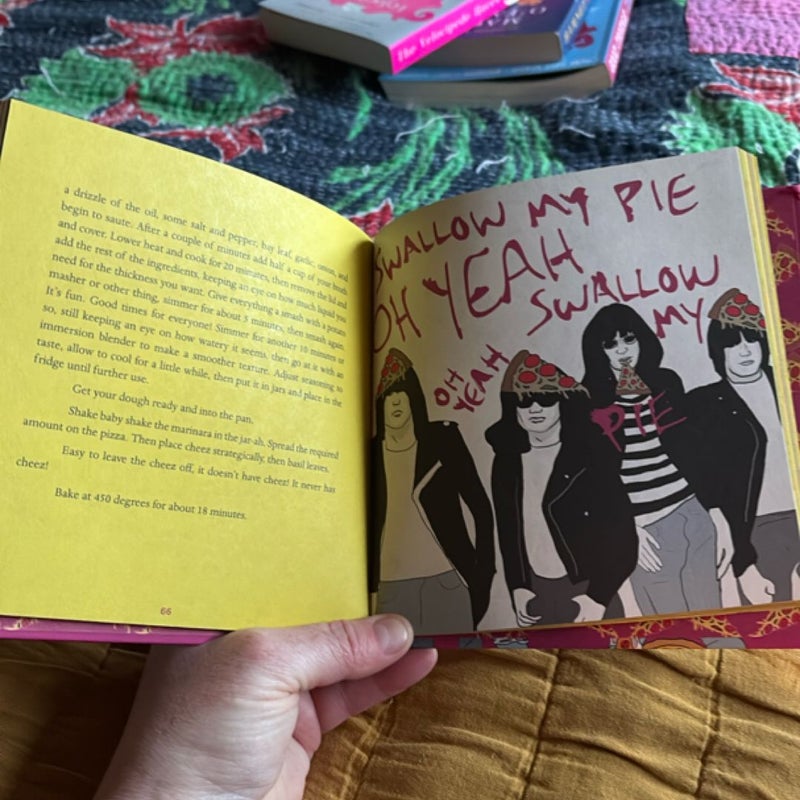 The Velocipede
a drizzle of the oil, some salt and pepper, bay leaf, garlic, onion, and
begin to saute. After a couple of minutes add half a cup of your broth
and cover. Lower heat and cook for 20 minutes, then remove the lid and
add the rest of the ingredients, keeping an eye on how much liquid you
need for the thickness you want. Give everything a smash with a potato
masher or other thing, simmer for about 5 minutes, then smash again.
It's fun. Good times for everyone! Simmer for another 10 minutes or
so, still keeping an eye on how watery it seems, then go at it with an
immersion blender to make a smoother texture. Adjust seasoning to
taste, allow to cool for a little while, then put it in jars and place in the
fridge until further use.
Get your dough ready and into the pan.
Shake baby shake the marinara in the jar-ah. Spread the required
amount on the pizza. Then place cheez strategically, then basil leaves.
Easy to leave the cheez off, it doesn't have cheez! It never has
cheez!
Bake at 450 degrees for about 18 minutes.
66
SWALLOW MY PIE
OH YEAH
SWALLOW
MY
OH
YEAH
PIE